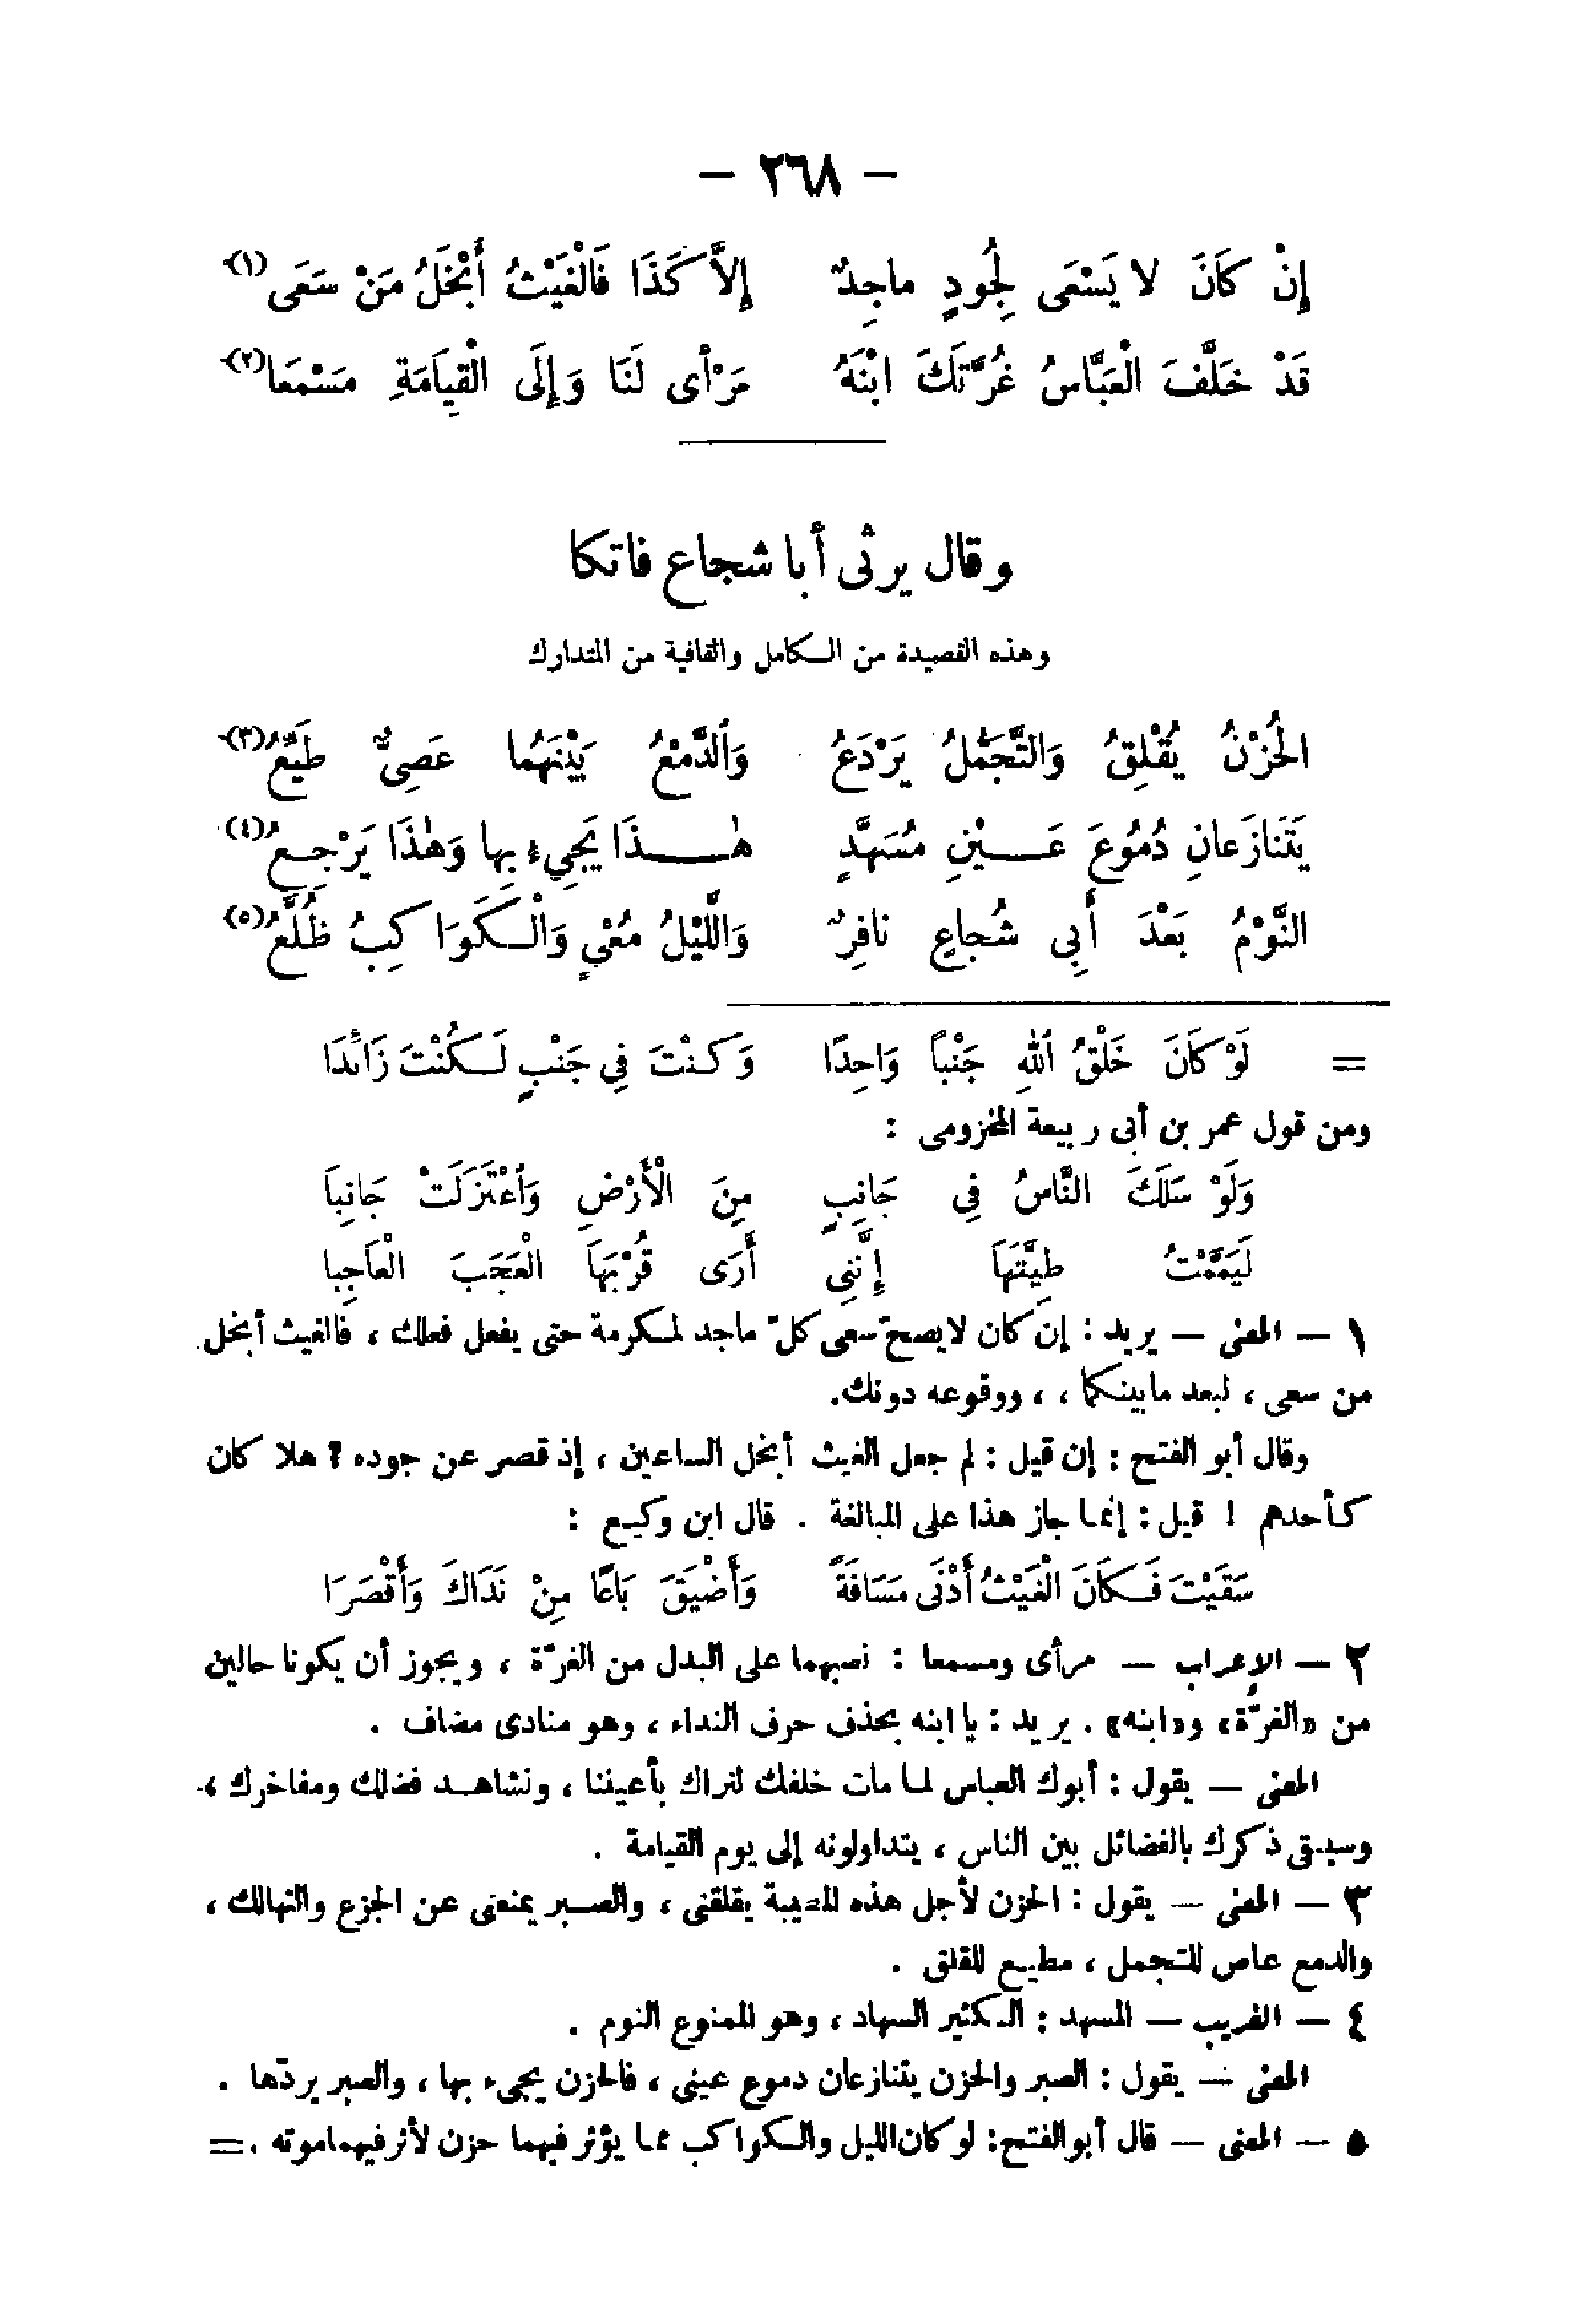 — ٢٦٨ —
إِنْ كَانَ لا يَسْعَى لِجُودٍ ماجِدٌ إِلاَّ كَذَا فَالْغَيْثُ أَبْخَلُ مَنْ سَعَى (١)
قَدْ خَلَّفَ الْعَبَّاسُ غُرَّتَكَ ابْنَهُ مَرْأى لَنَا وَإِلَى الْقِيَامَةِ مَسْمَعَا (٢)
وقال يرثى أبا شجاع فاتكا
وهذه القصيدة من الكامل والقافية من المتدارك
الْحُزْنُ يُقْلِقُ وَالتَّجَمُّلُ يَرْدَعُ وَالدَّمْعُ بَيْنَهُما عَصِىٌّ طَيِّعُ (٣)
يَتَنَازَعانِ دُمُوعَ عَيْنِ مُسَهَّدٍ هٰذَا يَجِيءُ بِها وَهٰذَا يَرْجِعُ (٤)
النَّوْمُ بَعْدَ أَبِى شُجاعٍ نافِرٌ وَاللَّيْلُ مُعْيٍ وَالْكَوَاكِبُ ظُلَّعُ (٥)
= لَوْ كَانَ خَلْقُ اللهِ جَنْباً وَاحِدًا وَكنْتَ فِي جَنْبٍ لَكُنْتَ زَائِدَا
ومن قول عمر بن أبى ربيعة المخزومى :
وَلَوْ سَلَكَ النَّاسُ فِي جَانِبٍ مِنَ الْأَرْضِ وَاعْتَزَلَتْ جَانِبَا
لَيَمَّمْتُ طِيَّتَهَا إِنَّنِى أَرَى قُرْبَهَا الْعَجَبَ الْعَاجِبا
١ — المعنى — يريد : إن كان لا يصحّ سعى كلّ ماجد لمكرمة حتى يفعل فعلك ، فالغيث أبخل
من سعى ، لبعد ما بينكما ، ، ووقوعه دونك.
وقال أبو الفتح : إن قيل : لم جعل الغيث أبخل الساعين ، إذ قصر عن جوده ؟ هلا كان
كأحدهم ! قيل : إنما جاز هذا على المبالغة . قال ابن وكيع :
سَقَيْتَ فَكَانَ الْغَيْثُ أَدْنَى مَسَافَةً وَأَضْيَقَ بَاعًا مِنْ نَدَاكَ وَأَقْصَرَا
٢ — الإعراب — مرأى ومسمعا : نصبهما على البدل من الغرّة ، ويجوز أن يكونا حالين
من «الغرّة» و«ابنه» . يريد : يا ابنه بحذف حرف النداء ، وهو منادى مضاف .
المعنى — يقول : أبوك العباس لما مات خلفك لنراك بأعيننا ، ونشاهد فضلك ومفاخرك ،
وسيبقى ذكرك بالفضائل بين الناس ، يتداولونه إلى يوم القيامة .
٣ — المعنى — يقول : الحزن لأجل هذه المصيبة يقلقنى ، والصبر يمنعنى عن الجزع والتهالك ،
والدمع عاص للتجمل ، مطيع للقلق .
٤ — الغريب — المسهد : الكثير السهاد ، وهو الممنوع النوم .
المعنى — يقول : الصبر والحزن يتنازعان دموع عينى ، فالحزن يجىء بها ، والصبر يردّها .
٥ — المعنى — قال أبو الفتح: لو كان الليل والكواكب مما يؤثر فيهما حزن لأثر فيهما موته . =